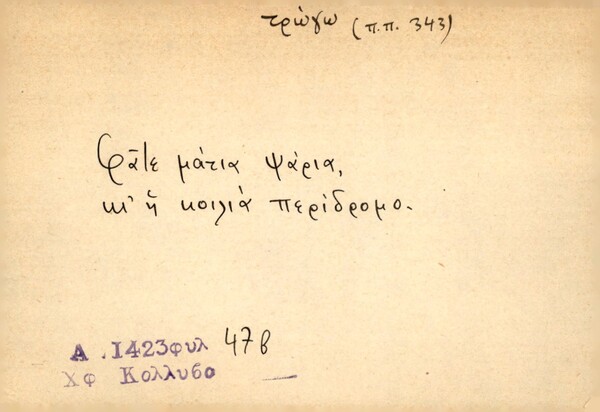 τρώγω (π.π. 343)
Φᾶτε μάτια ψάρια,
κι' ἡ κοιλιά περίδρομο.
Α .1423φυλ 47β
Χφ Κολλυβο